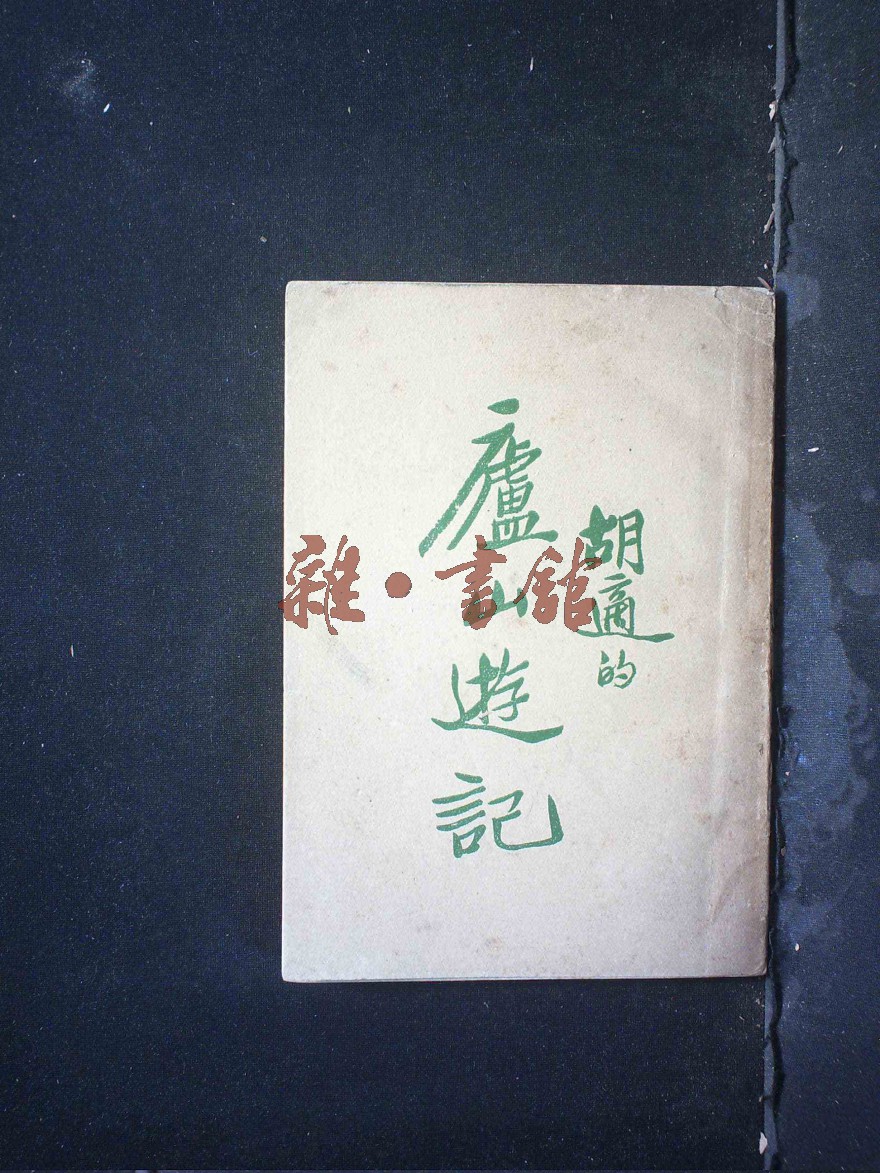 胡適的
廬山遊記
雜·書館